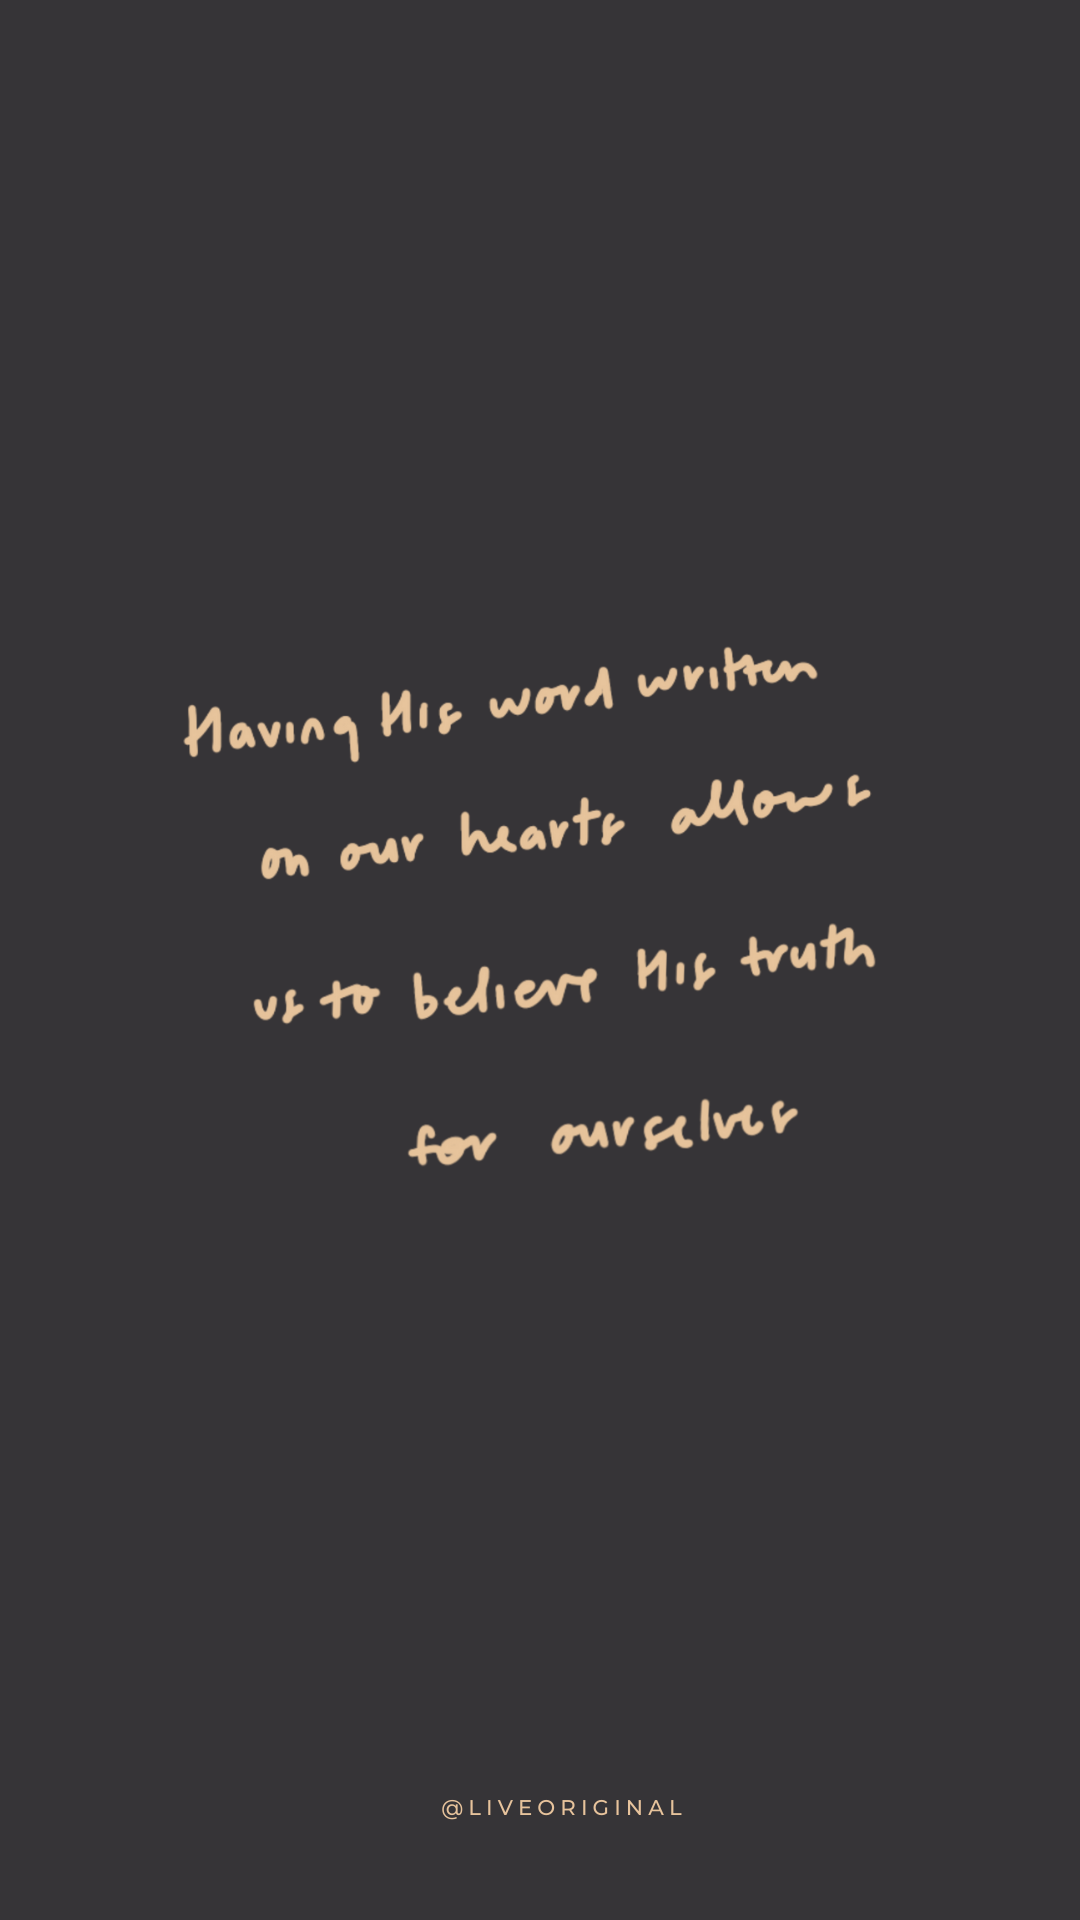 Having His word written
on our hearts allows
us to believe His truth
for ourselves
@LIVEORIGINAL